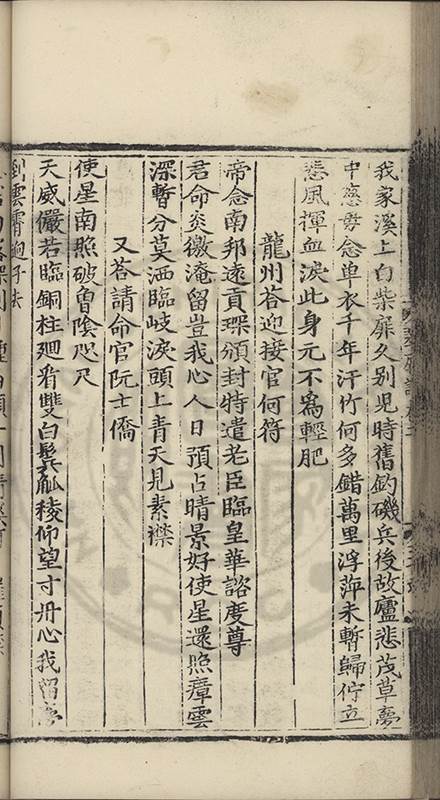 我家溪上白柴扉久別兒時舊釣磯兵後故廬悲茂草夢
中慈母念单衣千年汗竹何多錯萬里浮萍未暫歸佇立
悲風揮血淚此身元不爲輕肥
龍州荅迎接官何符
帝念南邦遠貢琛頒封特遣老臣臨皇華諮度尊
君命炎徼淹留豈我心人日預占晴景好使星還照瘴雲
深暫分莫洒臨岐淚頭上青天見素襟
又荅請命官阮士僑
使星南照破曾陰咫尺
天威儼若臨銅柱廻看雙白鬂觚稜仰望寸丹心我留
到雲霄